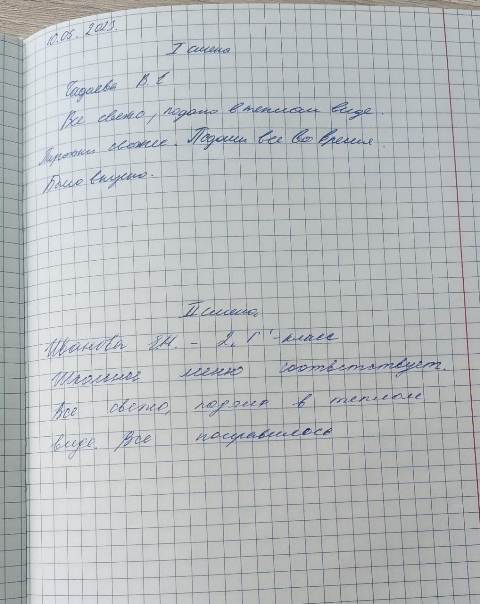 10.05.2023.
I смена
Гадаева В.Е
Все свежо, подано в теплом виде.
Пирожки свежие. Подали все во время.
Было вкусно.
II смена.
Иванова Е.Н. - 2 "Г" - класс
Школьное меню соответствует.
Все свежо, подано в теплом
виде. Все понравилось